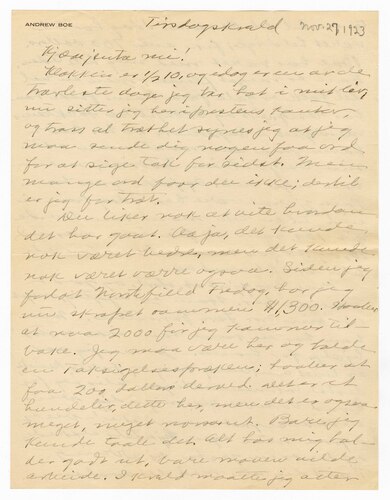 ANDREW BOE
Tirsdagskvæld Nov. 27 1923
Kjære jenta mi!
Klokken er 1/2 10, og idag er en av de
travleste dage jeg har hat i mit liv,
nu sitter jeg her i prestens kontor,
og trods al træthet synes jeg at jeg
maa sende dig nogen faa ord
for at sige tak for sidst. Men
mange ord faar du ikke; dertil
er jeg for træt.
Du liker nok at vite hvordan
det har gaat. Aa ja, det kunde
nok været bedre, men det kunde
nok været værre ogsaa. Siden jeg
forlot Northfield Fredag, har jeg
nu skrapet sammen $1,300. Haaber
at naa 2000 før jeg kommer til
bake. Jeg maa være her og holde
en Taksigelsespræken; haaber at
faa 200 dollars derved.
dette her, men det er ogsaa
meget, meget morsomt. Bare jeg
kunde taale det. Alt hos mig hol-
der godt ut, bare maven vilde
arbeide. I kvæld maatte jeg atter